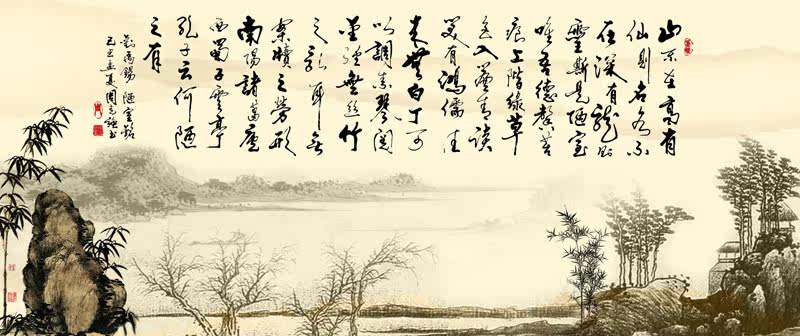 山不在高有
仙則名水不
在深有龍則
靈斯是陋室
唯吾德馨苔
痕上階綠草
色入簾青談
笑有鴻儒往
來無白丁可
以調素琴閱
金經無絲竹
之亂耳無
案牘之勞形
南陽諸葛廬
西蜀子雲亭
孔子云何陋
之有
劉禹錫 陋室銘
己丑孟夏周書